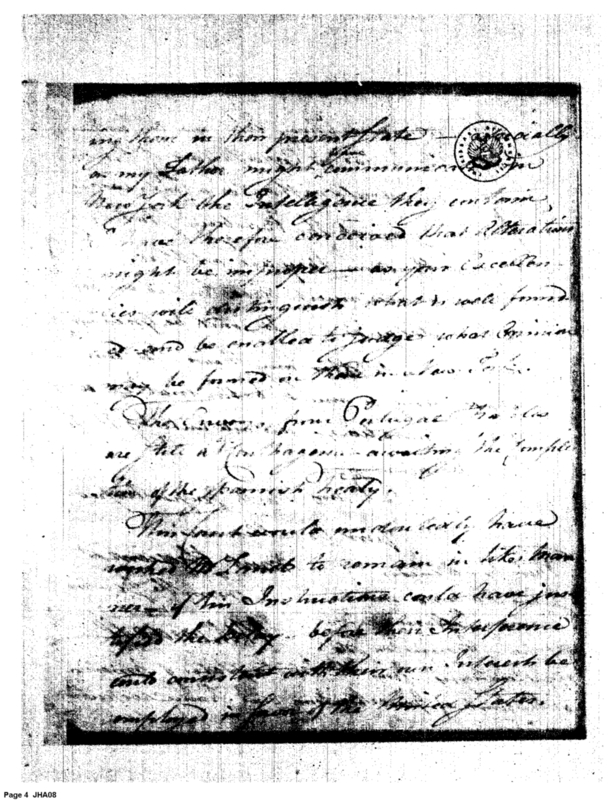 ing them in their present State — especially
as my Letter might communicate in
New York the Intelligence they contain,
I have therefore conceived that Alterations
might be improper — as your Excellen-
cies will distinguish what is well found-
ed and be enabled to judge what Opinion
may be formed on them in New York.
The Envoys from Portugal Naples
are still at awaiting the Comple-
tion of the Spanish treaty.
This would undoubtedly have
Mr Lamb to remain in like man-
ner — if his Instructions could have jus-
tified the delay — before their Interference
consistent with their own Interest be
employed in favor of the United States.
Page 4 JHA08